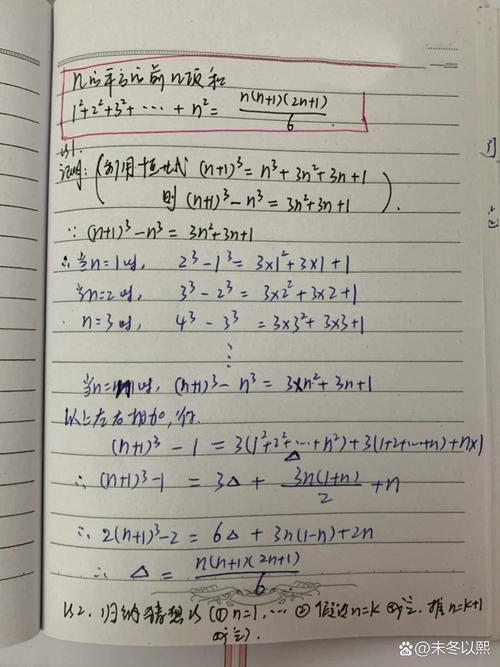 n的平方的前n项和
1²+2²+3²+⋯+n²= n(n+1)(2n+1)/6
法1.
证明: (利用恒等式 (n+1)³=n³+3n²+3n+1
则 (n+1)³-n³=3n²+3n+1).
∵ (n+1)³-n³=3n²+3n+1
∴当n=1时, 2³-1³=3×1²+3×1+1
当n=2时, 3³-2³=3×2²+3×2+1
n=3时, 4³-3³=3×3²+3×3+1
⋮
当n=n时, (n+1)³-n³=3×n²+3n+1
以上左右相加,得.
(n+1)³-1=3(1²+2²+⋯+n²)+3(1+2+⋯+n)+n×1
△
∴ (n+1)³-1=3△+ 3n(1+n)/2 +n
∴ 2(n+1)³-2=6△+3n(1-n)+2n
∴ △= n(n+1)(2n+1)/6
法2. 归纳猜想法 (① n=1, ⋯ ② 假设n=k 成立. 推n=k+1
成立).
@未冬以熙